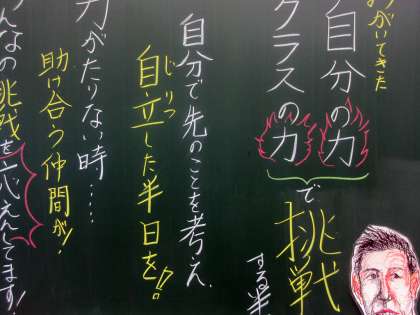 がいてきた
自分の力
クラスの力
で挑戦
する半
自分で先のことを考え、
じりつ
自立した半日を!!
力がたりない時....
助け合う仲間が!
んなの挑戦を応えんしてます!